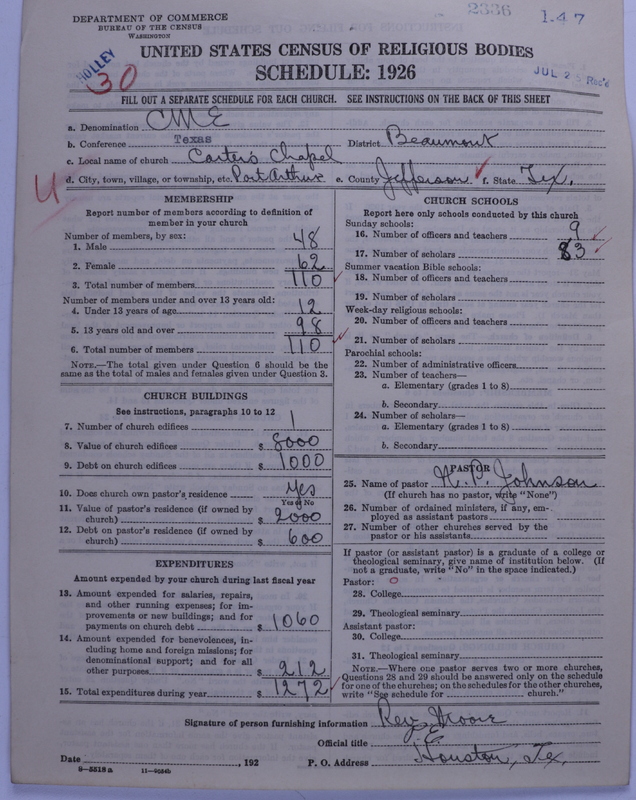 DEPARTMENT OF COMMERCE
BUREAU OF THE CENSUS
WASHINGTON
2336
1.47
HOLLEY
30
UNITED STATES CENSUS OF RELIGIOUS BODIES
SCHEDULE: 1926
JUL 2 Rec'd
FILL OUT A SEPARATE SCHEDULE FOR EACH CHURCH. SEE INSTRUCTIONS ON THE BACK OF THIS SHEET
a. Denomination CME
b. Conference Texas District Beaumont
c. Local name of church Carter's Chapel
d. City, town, village, or township, etc. Port Arthur e. County Jefferson f. State Tex.
4
MEMBERSHIP
Report number of members according to definition of
member in your church
Number of members, by sex:
1. Male 48
2. Female 62
3. Total number of members 110
Number of members under and over 13 years old:
4. Under 13 years of age 12
5. 13 years old and over 98
6. Total number of members 110
NOTE.—The total given under Question 6 should be
same as the total of males and females given under Question 3.
CHURCH BUILDINGS
See instructions, paragraphs 10 to 12
7. Number of church edifices 1
8. Value of church edifices $ 8000
9. Debt on church edifices $ 1000
10. Does church own pastor's residence Yes
Yes or No
11. Value of pastor's residence (if owned by
church) $ 2000
12. Debt on pastor's residence (if owned by
church) $ 600
EXPENDITURES
Amount expended by your church during last fiscal year
13. Amount expended for salaries, repairs,
and other running expenses; for im-
provements or new buildings; and for
payments on church debt $ 1060
14. Amount expended for benevolences, in-
cluding home and foreign missions; for
denominational support; and for all
other purposes $ 212
15. Total expenditures during year $ 1272
CHURCH SCHOOLS
Report here only schools conducted by this church
Sunday schools:
16. Number of officers and teachers 9
17. Number of scholars 83
Summer vacation Bible schools:
18. Number of officers and teachers
19. Number of scholars
Week-day religious schools:
20. Number of officers and teachers
21. Number of scholars
Parochial schools:
22. Number of administrative officers
23. Number of teachers—
a. Elementary (grades 1 to 8)
b. Secondary
24. Number of scholars—
a. Elementary (grades 1 to 8)
b. Secondary
PASTOR
25. Name of pastor Johnson
(If church has no pastor, write "None")
26. Number of ordained ministers, if any, em-
ployed as assistant pastors
27. Number of other churches served by the
pastor or his assistants
If pastor (or assistant pastor) is a graduate of a college or
theological seminary, give name of institution below. (If
not a graduate, write "No" in the space indicated.)
Pastor: 0
28. College
29. Theological seminary
Assistant pastor:
30. College
31. Theological seminary
NOTE.—Where one pastor serves two or more churches,
Questions 28 and 29 should be answered only on the schedule
for one of the churches; on the schedules for the other churches,
write "See schedule for church."
Signature of person furnishing information Rev. Moore
Official title
Date , 192 P. O. Address Houston, Tex.
8-5518a 11-9584b